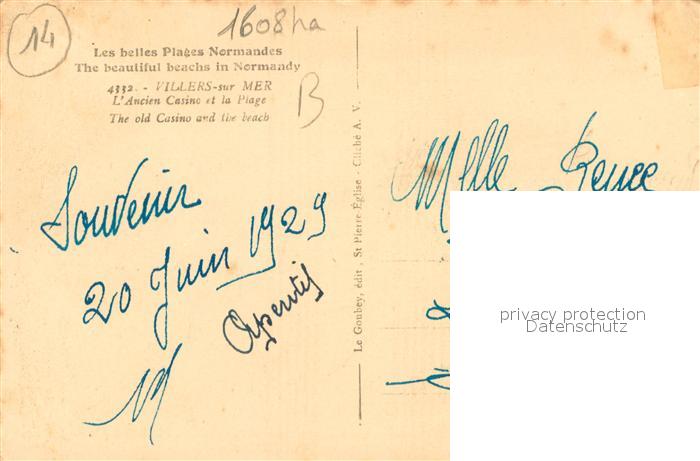 14
1608ha
Les belles Plages Normandes
The beautiful beachs in Normandy
4332. - VILLERS-sur MER
L'Ancien Casino et la Plage
The old Casino and the beach
B
Souvenir
20 Juin 1929
Aperitif
M
Le Goubey, édit, St Pierre-Église - Cliché A. V.
Melle Renee
privacy protection
Datenschutz